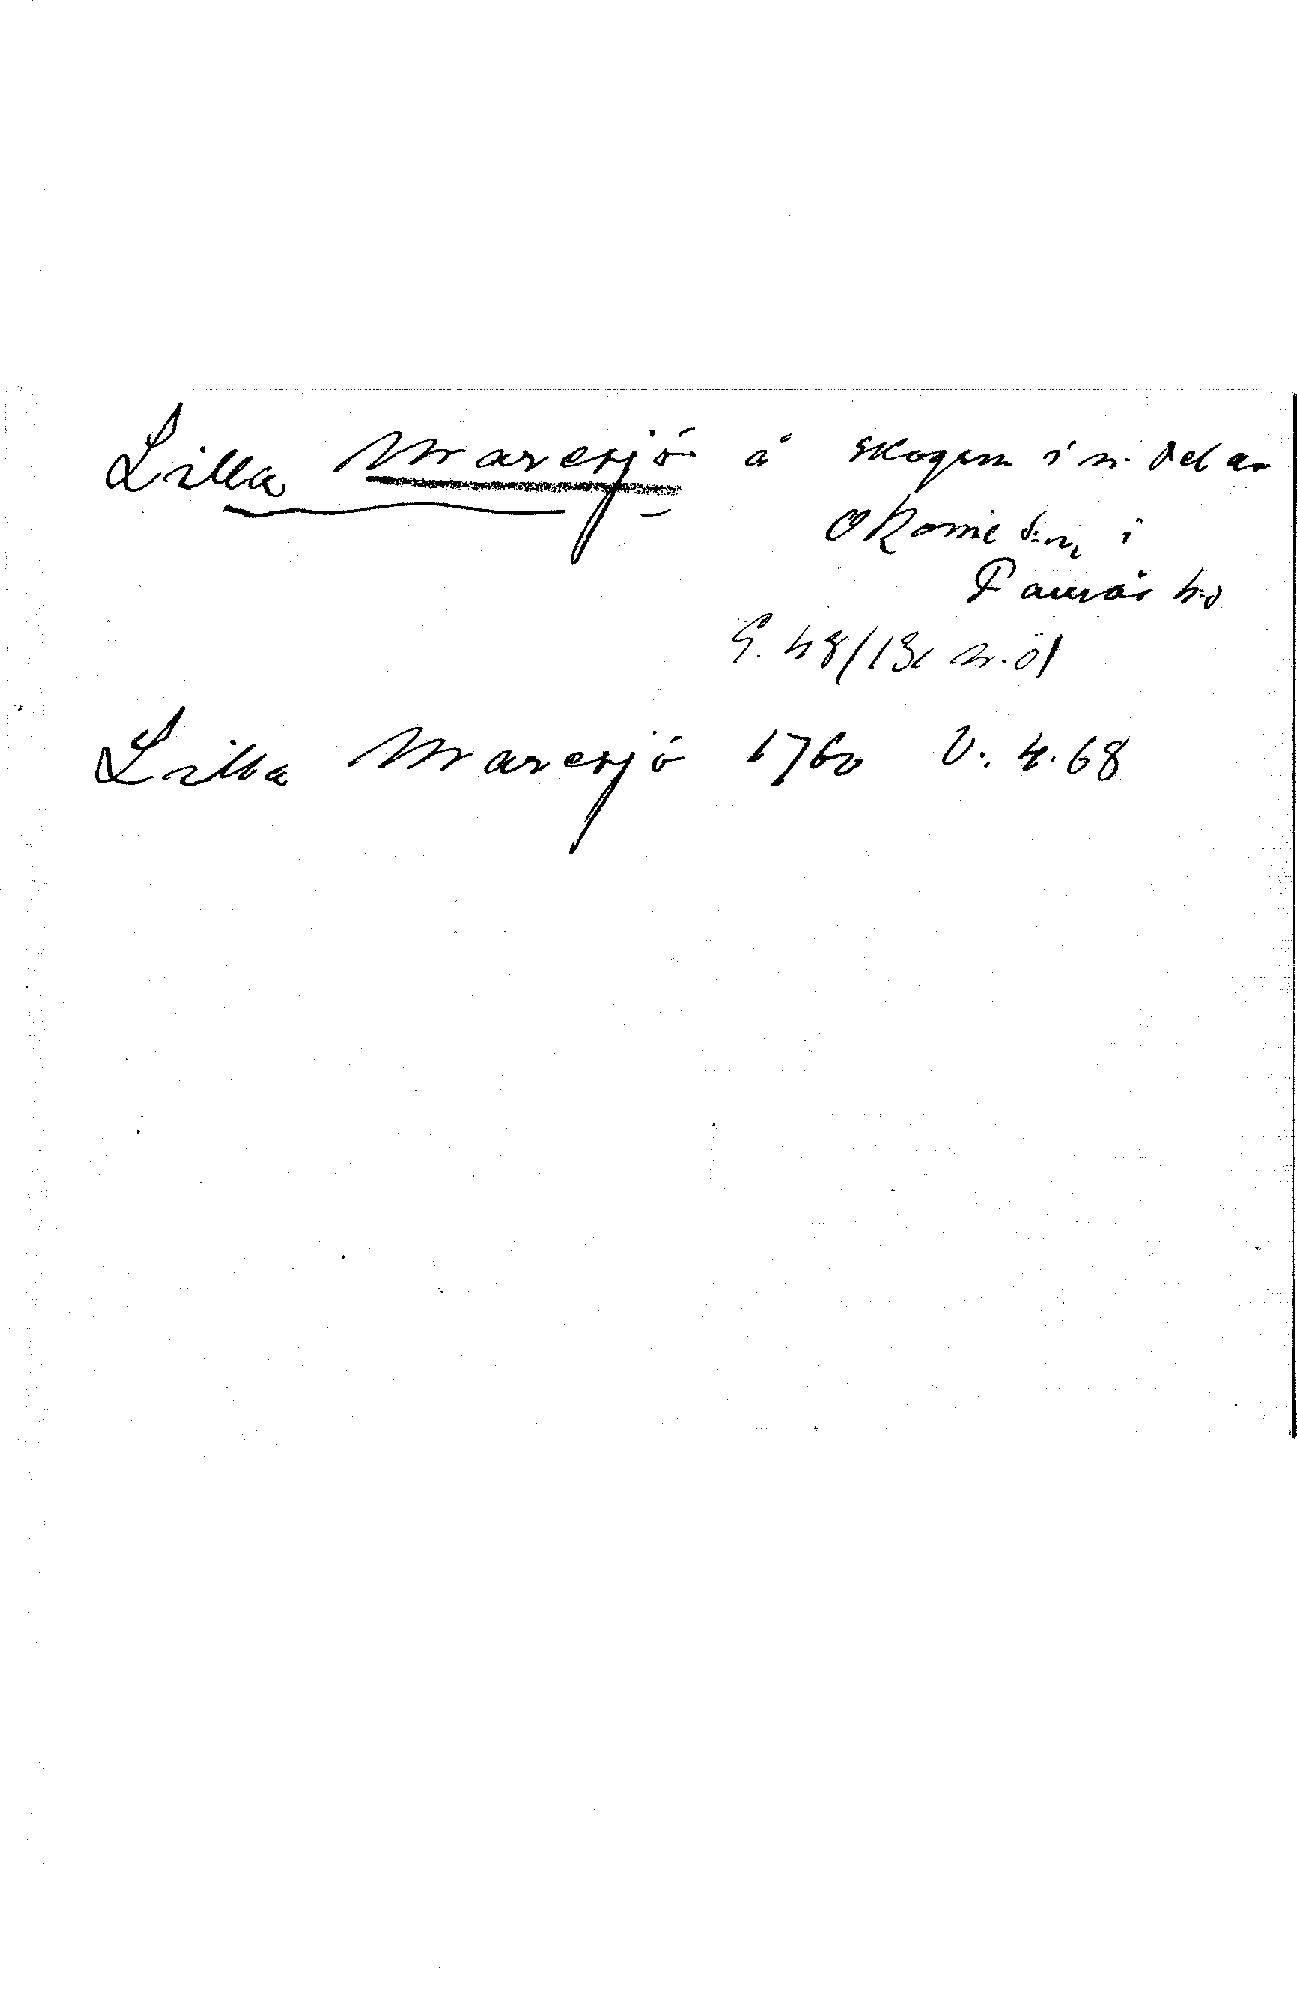 Lilla Maresjö å skogen i n. delar
Okome sn, i
Faurås hd
G. 48/13, n.öl
Lilla Maresjö 1760 V:. 4.68